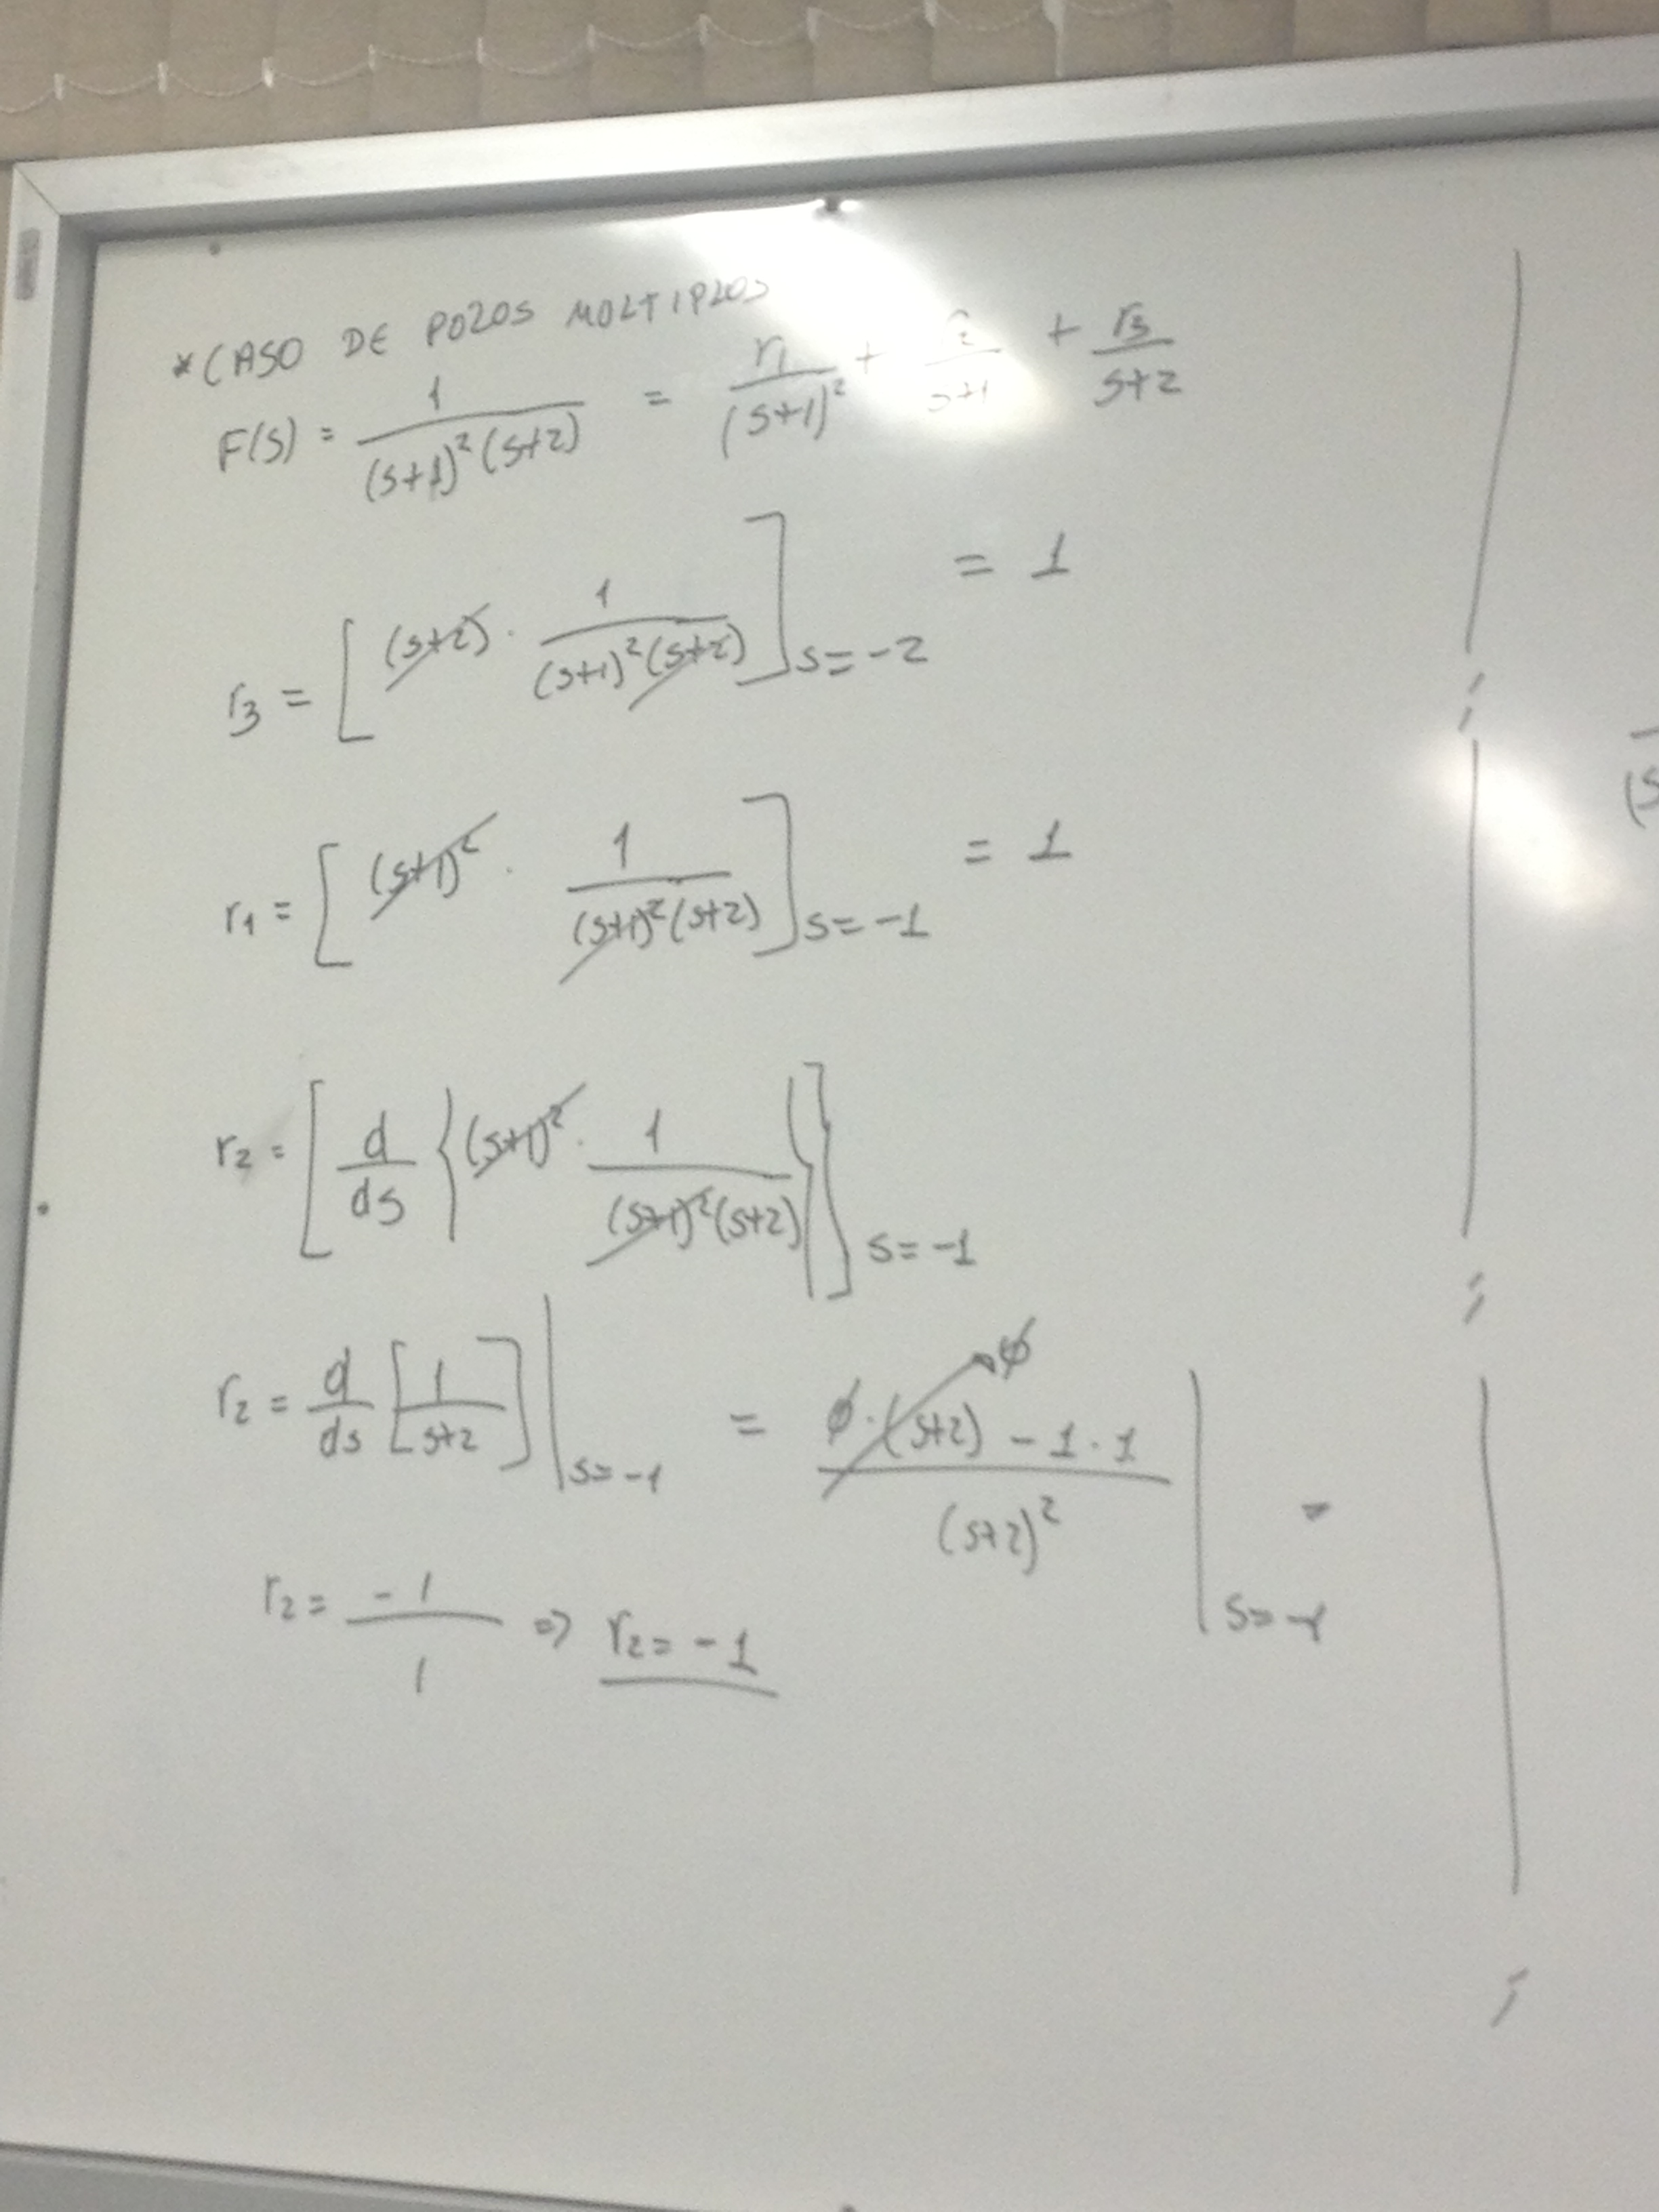 *CASO DE POLOS MULTIPLOS
F(s) = 1 / (s+1)²(s+2) = r₁ / (s+1)² + r₂ / s+1 + r₃ / s+2
r₃ = [ (s+2) · 1 / (s+1)²(s+2) ] s=-2 = 1
r₁ = [ (s+1)² · 1 / (s+1)²(s+2) ] s=-1 = 1
r₂ = [ d/ds { (s+1)² · 1 / (s+1)²(s+2) } ] s=-1
r₂ = d/ds [ 1 / s+2 ] | s=-1 = ∅·(s+2) - 1·1 / (s+2)² | s=-1 ∅
r₂ = -1 / 1 ⇒ r₂ = -1
(s